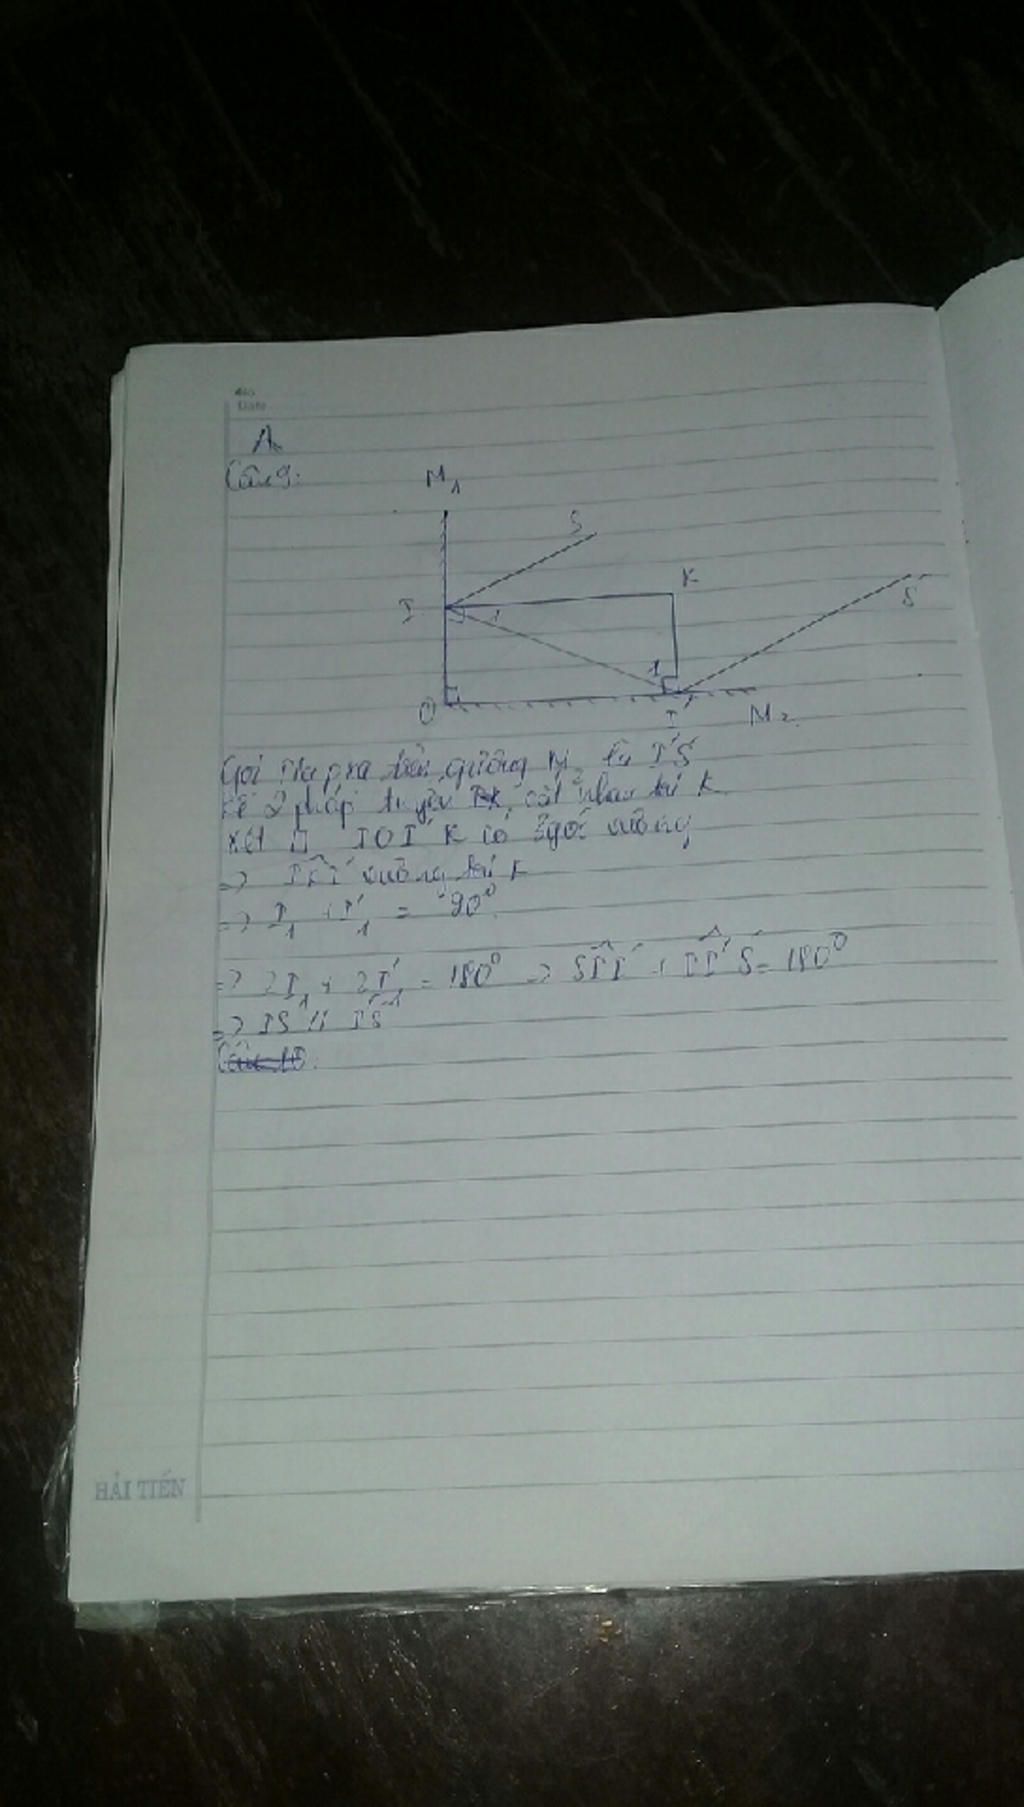 No.
Date
A.
Câu 9:
M1
S
I
1
K
1
S'
O
I'
M2
Gọi tia pxa trên gương M2 là I'S'
Kẻ 2 pháp tuyến cắt nhau tại K
Xét □ IOI'K có 3 góc vuông
=> IKI' vuông tại K
=> I1 + I'1 = 90°
=> 2I1 + 2I'1 = 180° => SII' + II'S' = 180°
=> IS // I'S'
Câu 10:
HẢI TIẾN